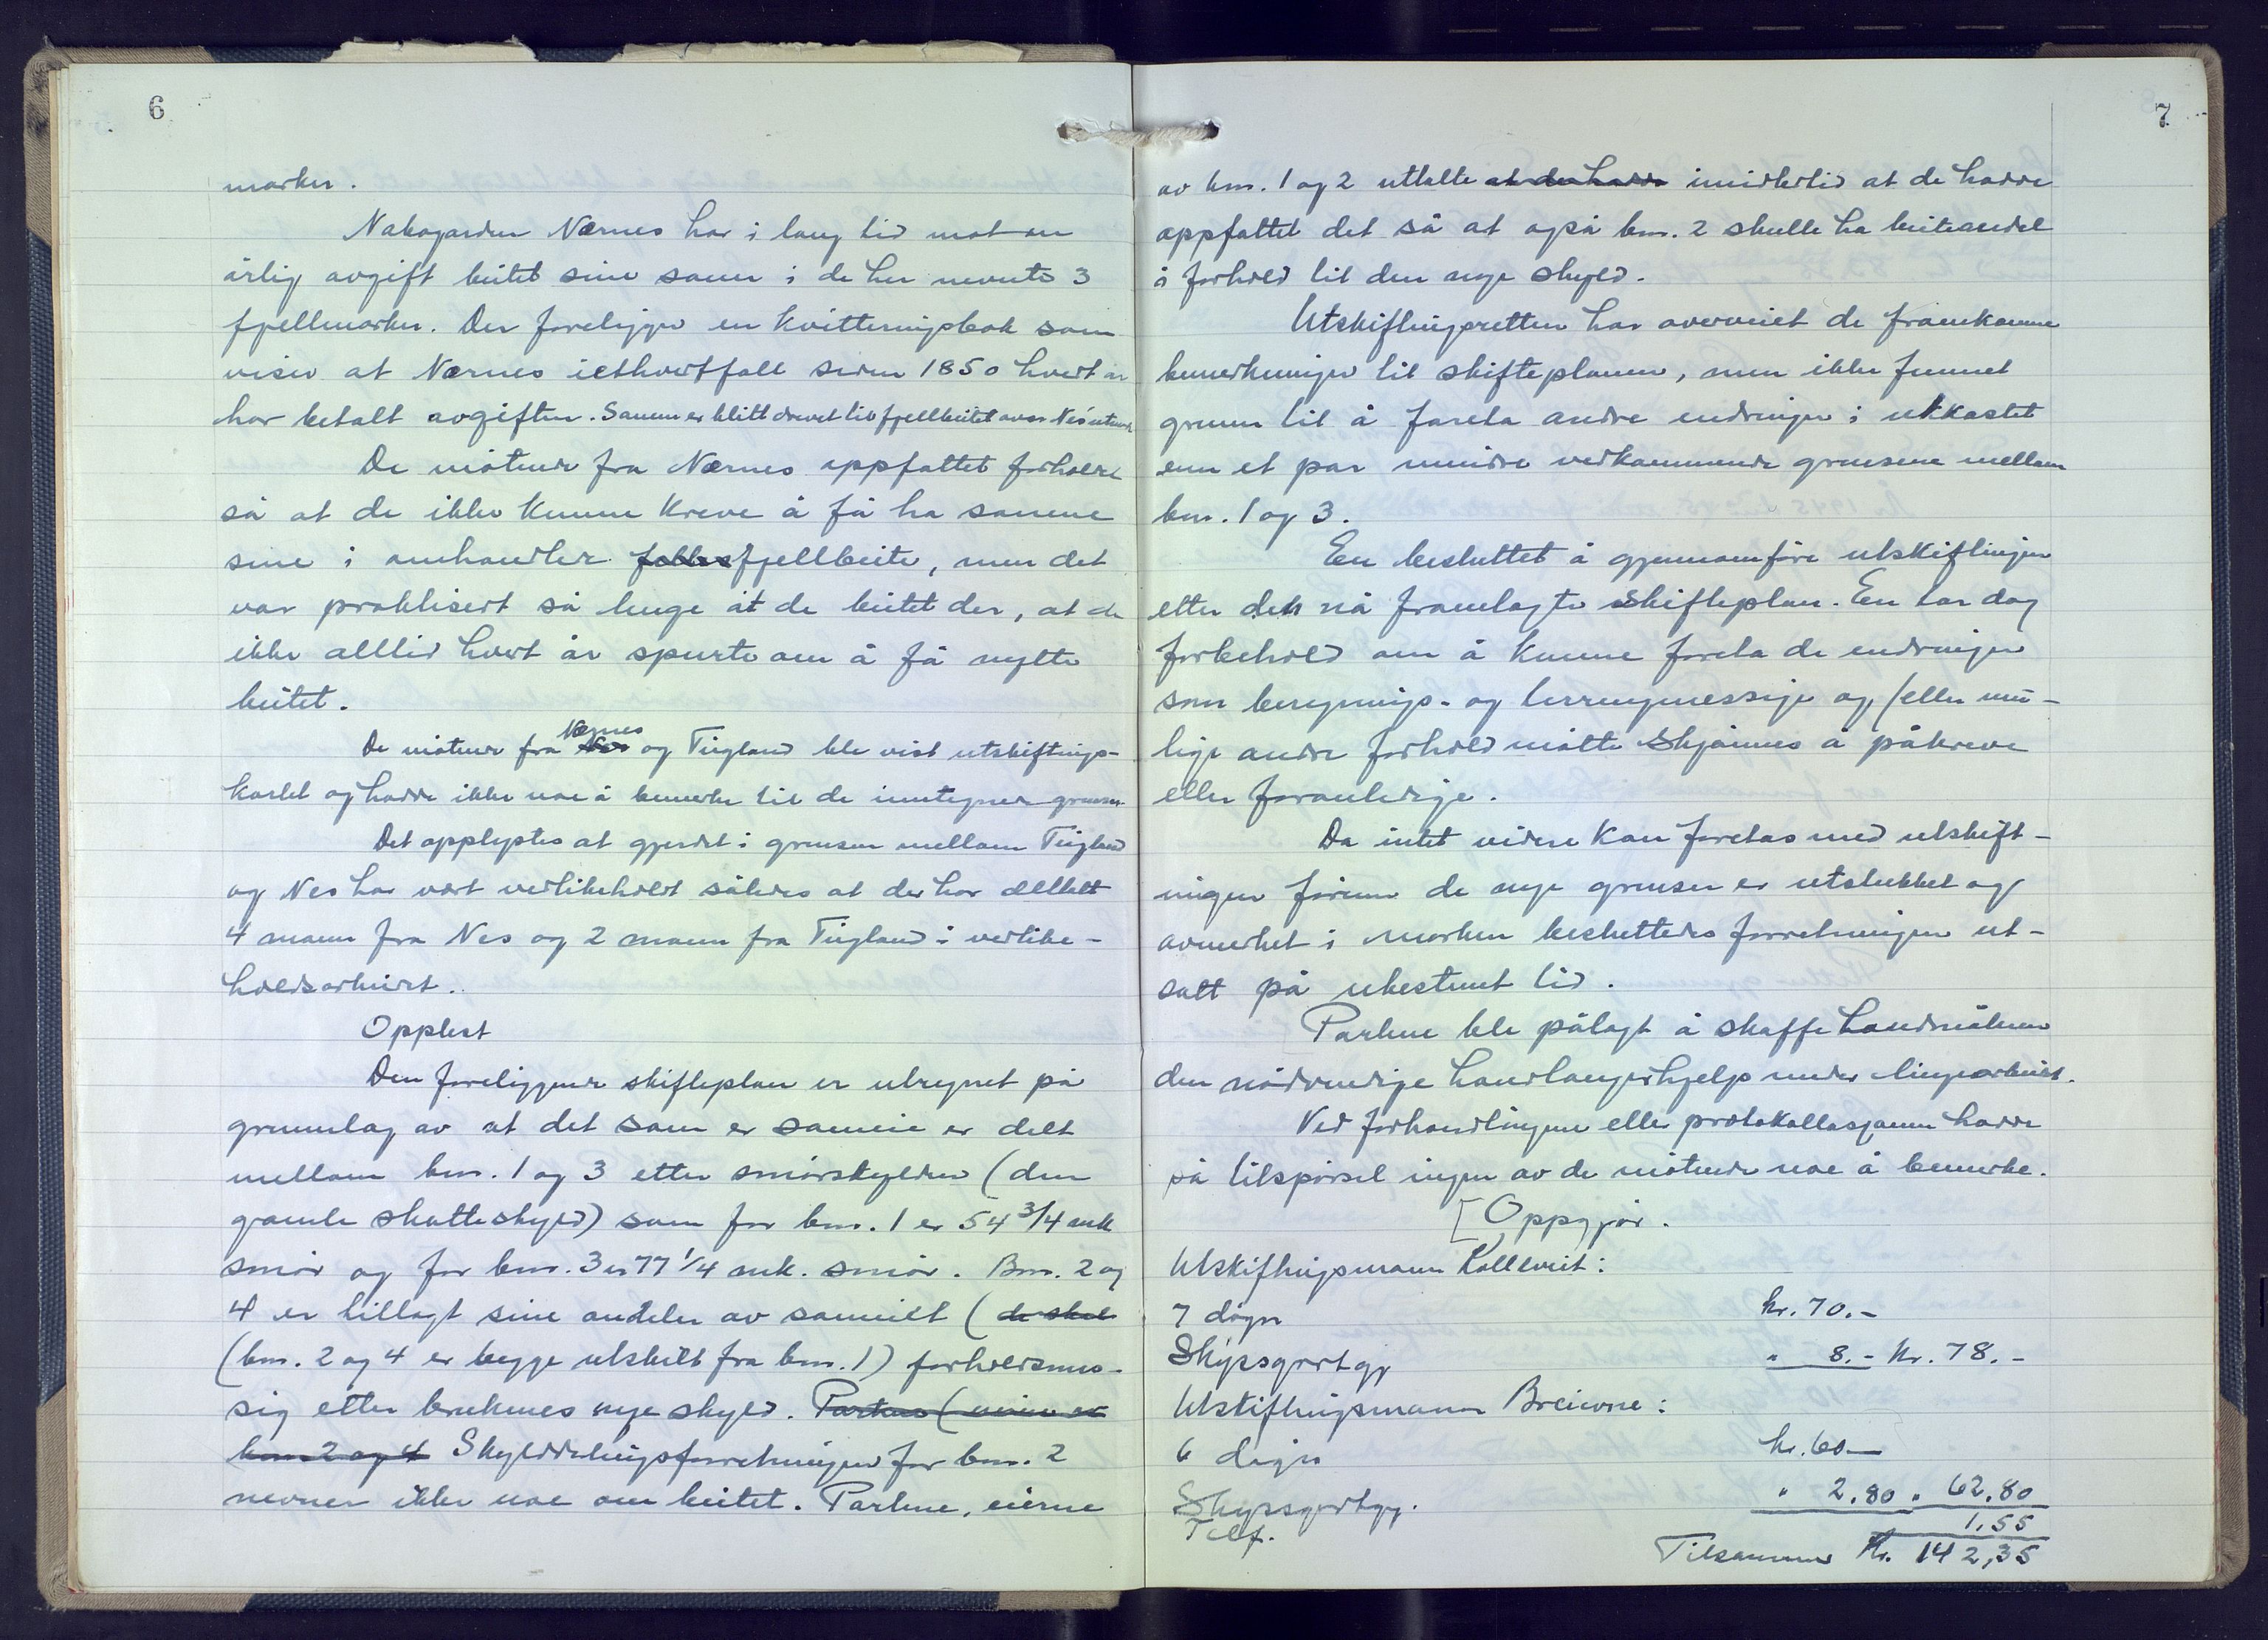 6
marker.
Nabogarden Nærnes har i lang tid mot en
årlig avgift beitet sine sauer i de her nevnte 3
fjellmarker. Der foreligger en kvitteringsbok som
viser at Nærnes iethvertfall siden 1850 hvert år
har betalt avgiften. Sauene er blitt drevet til fjellbeitet over Nes'
De møtende fra Nærnes oppfattet forholdet
så at de ikke kunne kreve å få ha sauene
sine i omhandlede felles fjellbeite, men det
var praktisert så lenge at de beitet der, at de
ikke alltid hvert år spurte om å få nytte
beitet.
Nærnes
De møtende fra Nes og Tingland ble vist utskiftings-
kartet og hadde ikke noe å bemerke til de inntegnede grenser
Det opplystes at gjerdet i grensen mellom Tingland
og Nes har vært vedlikeholdt således at der har deltatt
4 mann fra Nes og 2 mann fra Tingland i vedlike-
holdsarbeidet.
Opplest
Den foreliggende skifteplan er utregnet på
grunnlag av at det som er sameie er delt
mellom bnr. 1 og 3 etter smørskylden (den
gamle skatteskyld) som for bnr. 1 er 54 3/4 mk
smør og for bnr. 3 er 77 1/4 mk. smør. Bnr. 2 og
4 er tillagt sine andeler av sameiet ( de skal
(bnr. 2 og 4 er begge utskilt fra bnr. 1) forholdsmes-
sig etter brukenes nye skyld. Partene (
bnr. 2 og 4 Skylddelingsforretningen for bnr. 2
nevner ikke noe om beitet. Partene, eierne
7
av bnr. 1 og 2 uttalte at de hadde imidlertid at de hadde
oppfattet det så at også bnr. 2 skulle ha beiteandel
i forhold til den nye skyld.
Utskiftingsretten har overveiet de framkomne
bemerkninger til skifteplanen, men ikke funnet
grunn til å foreta andre endringer i utkastet
enn et par mindre vedkommende grensene mellom
bnr. 1 og 3.
En besluttet å gjennomføre utskiftingen
etter den nå framlagte skifteplan. En tar dog
forbehold om å kunne foreta de endringer
som beregnings- og terrengmessige og/eller mu-
lige andre forhold måtte skjønnes å påkreve
eller foranledige.
Da intet videre kan foretas med utskift-
ningen førenn de nye grenser er utstukket og
avmerket i marken besluttedes forretningen ut-
satt på ubestemt tid.
Partene ble pålagt å skaffe landmåleren
den nødvendige handlangerhjelp under linjearbeidet.
Ved forhandlingene eller protokollasjonen hadde
på tilspørsel ingen av de møtende noe å bemerke.
[Oppgjør.
Utskiftingsmann Kollevit:
7 døgn kr. 70.-
Skyssgodtgj " 8.- kr. 78.-
Utskiftingsmann Breivone:
6 døgn kr. 60-
Skyssgodtgj. " 2.80 " 62.80
Telf. 1.55
Tilsammen Kr. 142,35